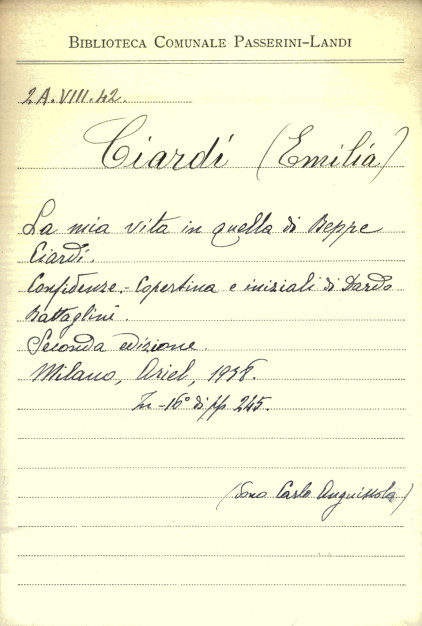 BIBLIOTECA COMUNALE PASSERINI-LANDI
2A.VIII.42.
Ciardi (Emilia)
La mia vita in quella di Beppe
Ciardi.
Confidenze.- Copertina e iniziali di Dardo
Battaglini.
Seconda edizione.
Milano, Ariel, 1938.
In -16° di pp 245.
(Dono Carlo Anguissola)